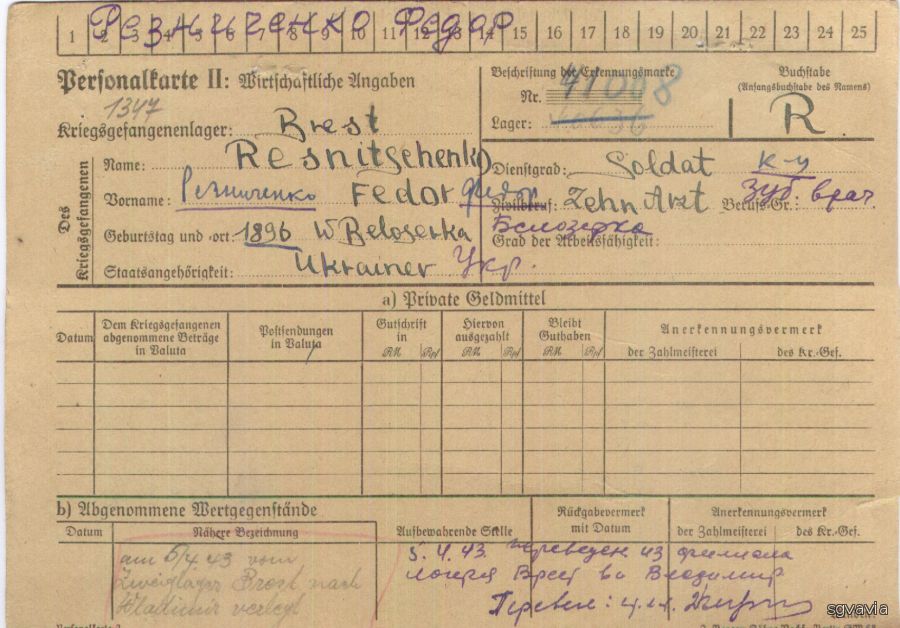 Резниченко Федор
1 2 3 4 5 6 7 8 9 10 11 12 13 14 15 16 17 18 19 20 21 22 23 24 25
Personalkarte II: Wirtschaftliche Angaben
1347
Kriegsgefangenenlager: Brest
Beschriftung der Erkennungsmarke
Nr. 41008
Lager:
Buchstabe
(Anfangsbuchstabe des Namens)
R
Des Kriegsgefangenen
Name: Resnitschenko
Vorname: Резниченко Fedor Федор
Geburtstag und -ort: 1896 W. Beloserka Белозерка
Staatsangehörigkeit: Ukrainer Укр.
Dienstgrad: Soldat к-ц
Zivilberuf: Zehn Arzt Berufs-Gr.: Зуб. врач.
Grad der Arbeitsfähigkeit:
a) Private Geldmittel
Datum
Dem Kriegsgefangenen abgenommene Beträge in Valuta
Postsendungen in Valuta
Gutschrift in
RM Rpf
Hiervon ausgezahlt
RM Rpf
Bleibt Guthaben
RM Rpf
Anerkennungsvermerk
der Zahlmeisterei
des Kr.-Gef.
b) Abgenommene Wertgegenstände
Datum
Nähere Bezeichnung
Aufbewahrende Stelle
Rückgabevermerk mit Datum
Anerkennungsvermerk
der Zahlmeisterei
des Kr.-Gef.
am 5/4.43 vom
Zweiglager Brest nach
Wladimir verlegt
5.4.43. переведен из филиала
лагеря Брест во Владимир
Перевел:
sgvavia